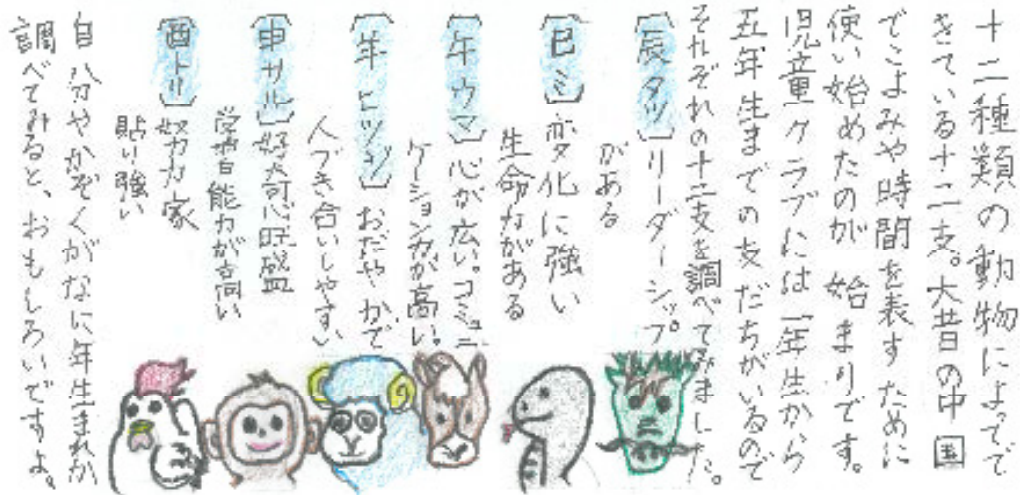 十二種類の動物によってで
きている十二支。大昔の中国
でこよみや時間を表すために
使い始めたのが始まりです。
児童クラブには一年生から
五年生までの友だちがいるので
それぞれの十二支を調べてみました。
辰タツ リーダーシップ
がある
巳ミ 変化に強い
生命力がある
午ウマ 心が広い。コミュニ
ケーション力が高い。
羊ヒツジ おだやかで
人づき合いしやすい
申サル 好奇心旺盛
学習能力が高い
酉トリ 努力家
粘り強い
自分やかぞくがなに年生まれか
調べてみると、おもしろいですよ。